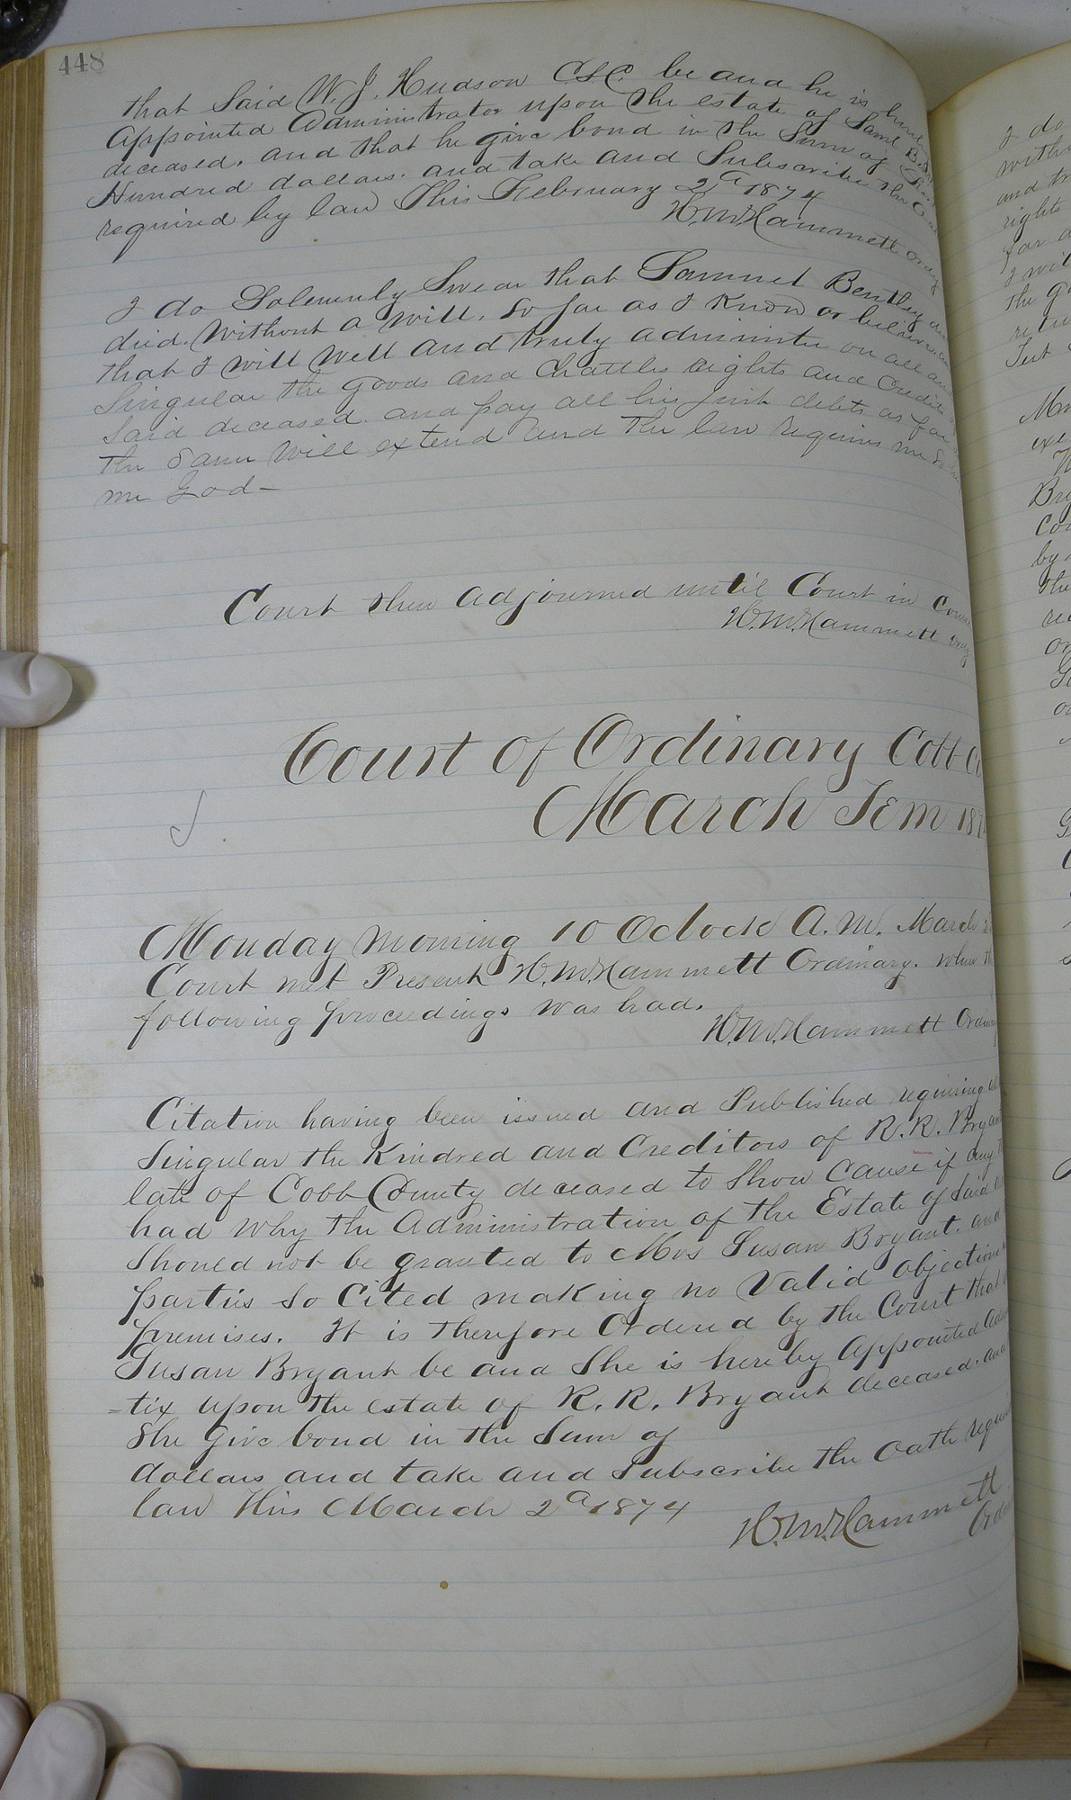 448
that Said W. J. Hudson CSC. be and he is
Appointed Administrator upon the estate of Saml
deceased. and that he give bond in the Sum of
Hundred dollars. and take and Subscribe the
required by law This February 2d 1874
H. M. Hammett ordy
I do Solemnly Swear that Samuel Bentley
died. without a will. So far as I know or believe
that I will well and truly administer on all
Singular the goods and Chattles rights and Credits
Said deceased. and pay all his just debts as far
the Same will extend and the law requires me So
me God-
Court then adjourned until Court in
H. M. Hammett ordy
Court of Ordinary Cobb
March Tem
Monday morning 10 Oclock A. M. March
Court met Present H. M. Hammett Ordinary. when
following proceedings was had.
H. M. Hammett
Citation having been issued and Published requiring
Singular the Kindred and Creditors of R. R.
late of Cobb County deceased to Show Cause if any
had why the Administration of the Estate of Said
Should not be granted to Mrs Susan Bryant. and
parties So Cited making no Valid objection
premises. It is therefore Ordered by the Court that
Susan Bryant be and She is hereby Appointed
=tix upon the estate of R. R. Bryant deceased. and
She give bond in the Sum of
dollars and take and Subscribe the oath
law This March 2d 1874
H. M. Hammett
I do
and
rights
far
I will
the
Test
by
the